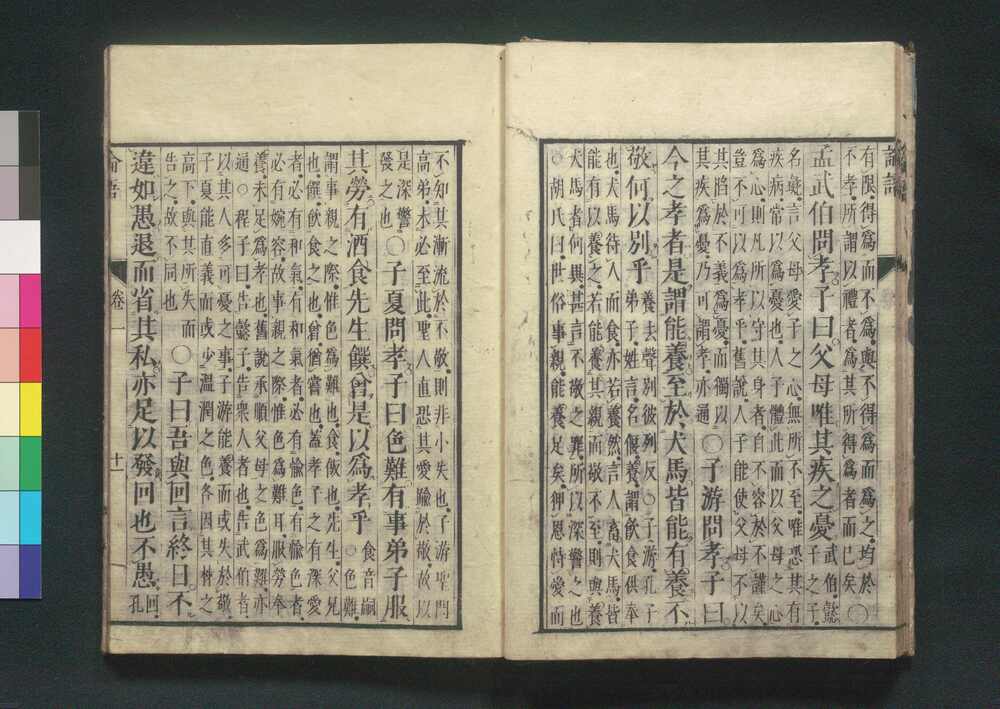 論語
有限得爲而不爲與不得爲而爲之均於
不孝所謂以禮者爲其所得爲者而已矣
○
孟武伯問孝子曰父母唯其疾之憂
武伯懿
子之子
名彘言父母愛子之心無所不至唯恐其有
疾病常以爲憂也人子體此而以父母之心
爲心則凡所以守其身者自不容於不謹矣
豈不可以爲孝乎舊說人子能使父母不以
其陷於不義爲憂而獨以
其疾爲憂乃可謂孝亦通
○子游問孝子曰
今之孝者是謂能養至於犬馬皆能有養不
敬何以別乎
養去聲別彼列反○子游孔子
弟子姓言名偃養謂飲食供奉
也犬馬待人而食亦若養然言人畜犬馬皆
能有以養之若能養其親而敬不至則與養
犬馬者何異甚言不敬之罪所以深警之也
○胡氏曰世俗事親能養足矣狎恩恃愛而
不知其漸流於不敬則非小失也子游聖門
高弟未必至此聖人直恐其愛踰於敬故以
是深警
發之也
○子夏問孝子曰色難有事弟子服
其勞有酒食先生饌曾是以爲孝乎
食音嗣
○色難
謂事親之際惟色爲難也食飯也先生父兄
也饌飲食之也曾猶嘗也蓋孝子之有深愛
者必有和氣有和氣者必有愉色有愉色者
必有婉容故事親之際惟色爲難耳服勞奉
養未足爲孝也舊說承順父母之色爲難亦
通○程子曰告懿子告衆人者也告武伯者
以其人多可憂之事子游能養而或失於敬
子夏能直義而或少溫潤之色各因其材之
高下與其所失而
告之故不同也
○子曰吾與回言終日不
違如愚退而省其私亦足以發回也不愚
回
孔
論語
卷一
十一